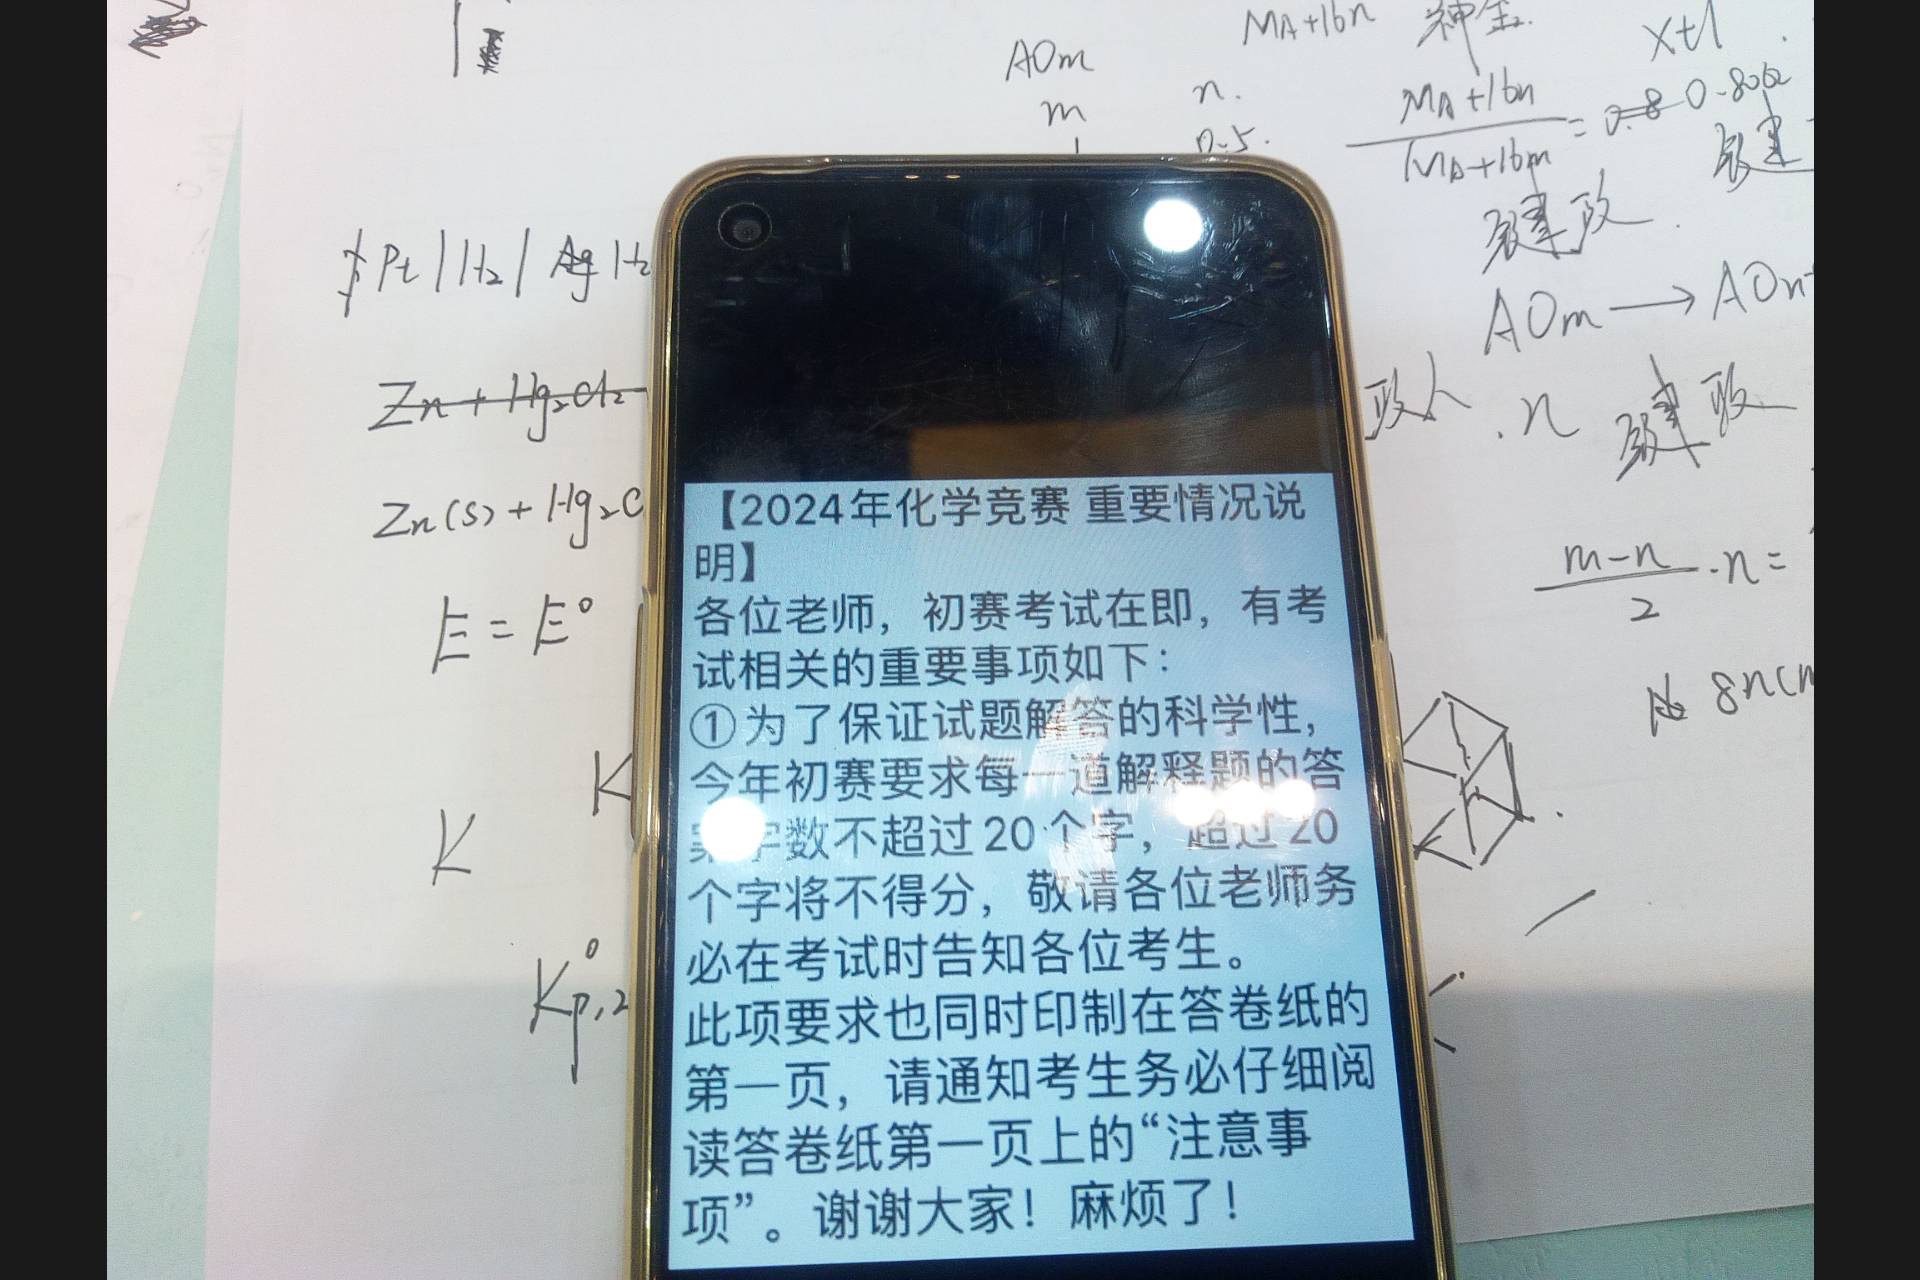 MA+16n
X+1
AOm
n.
MA+16n
m
0.5.
MA+16m
=
0.8062
Pt | H2 | Ag H2
AOm → AOn
Zn + Hg2Cl2
n
Zn(s) + Hg2C
m-n
2
·n =
E = E°
8n(m
K
K
K°p,2
【2024年化学竞赛 重要情况说
明】
各位老师，初赛考试在即，有考
试相关的重要事项如下：
①为了保证试题解答的科学性，
今年初赛要求每一道解释题的答
案字数不超过20个字，超过20
个字将不得分，敬请各位老师务
必在考试时告知各位考生。
此项要求也同时印制在答卷纸的
第一页，请通知考生务必仔细阅
读答卷纸第一页上的“注意事
项”。谢谢大家！麻烦了！